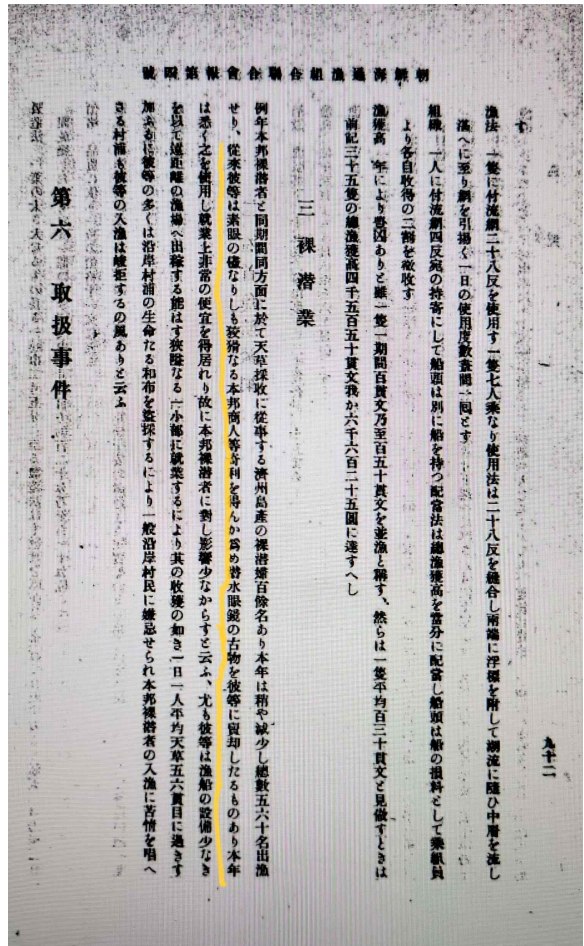 朝鮮海通漁組合聯合會報第四號
九十二
す
漁法　一隻に付流網二十八反を使用す一隻七人乘なり使用法は二十八反を縫合し兩端に浮標を附して潮流に隨ひ中層を流し
滿へに至り網を引揚く一日の使用度數晝間一回とす
組織　一人に付流網四反宛の持寄にして船頭は別に船を持つ配當法は總漁獲高を當分に配當し船頭は船の損料として乘組員
より各自收得の二割を徵收す
漁獲高　年により豊凶ありと雖一隻一期間百貫文乃至百五十貫文を並漁と稱す、然らは一隻平均百三十貫文と見做すときは
前記三十五隻の總漁獲高四千五百五十貫文我か六千六百二十五圓に達すへし
三　裸潜業
例年本邦裸潜者と同期間同方面に於て天草採收に從事する濟州島產の裸潜婦百餘名あり本年は稍や減少し總數五六十名出漁
せり、從來彼等は素眼の儘なりしも狡猾なる本邦商人等奇利を得んか爲め潜水眼鏡の古物を彼等に賣却したるものあり本年
は悉く之を使用し就業上非常の便宜を得居れり故に本邦裸潜者に對し影響少なからすと云ふ、尤も彼等は漁船の設備少なき
を以て遠距離の漁場へ出稼する能はす狹隘なる一小部に就業するにより其の收獲の如き一日一人平均天草五六貫目に過きす
加ふるに彼等の多くは沿岸村浦の生命たる和布を盜採するにより一般沿岸村民に嫌忌せられ本邦裸潜者の入漁に苦情を唱へ
さる村浦も彼等の入漁は峻拒するの風ありと云ふ
第六　取扱事件